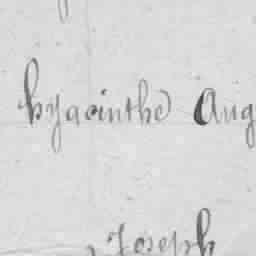 hyacinthe Aug
Joseph